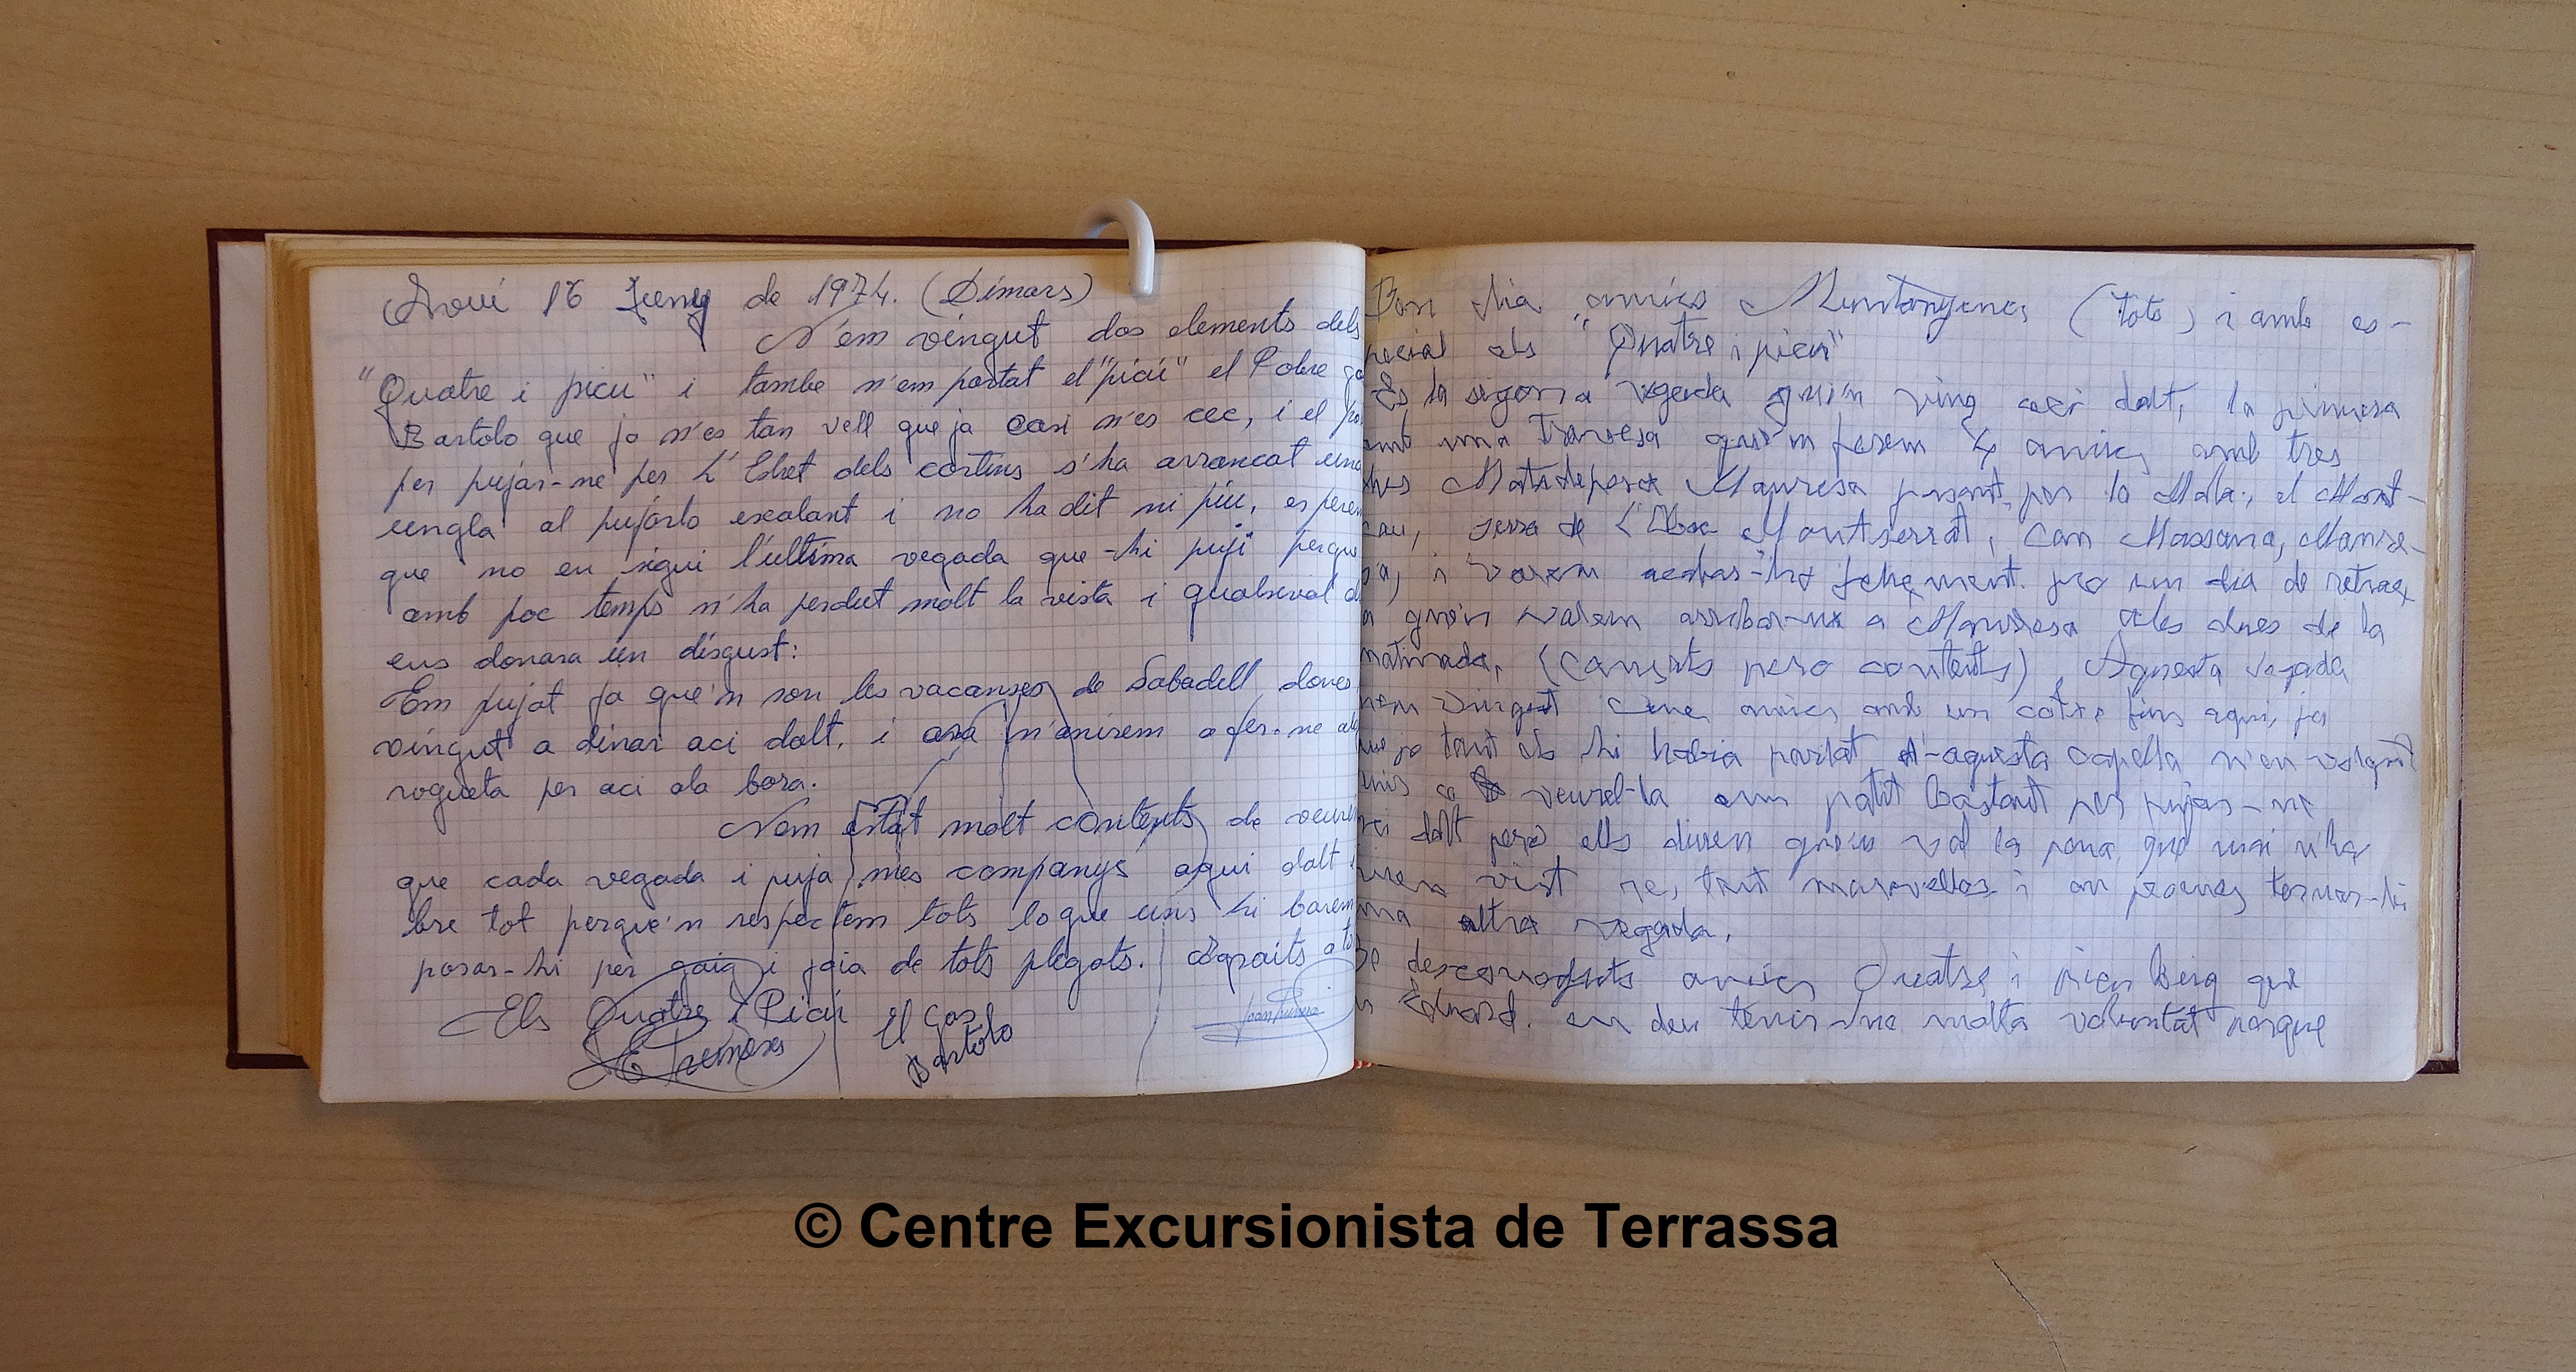 Avui 16 Juny de 1974. (Dimars)
N'em vingut dos elements dels
"Quatre i picu" i tambe n'em portat el "picu" el Pobre go
Bartolo que ja n'es tan vell que ja casi n'es cec, i el po
per pujar-ne per L'Estret dels cortins s'ha arrancat una
ungla al pujarlo escalant i no ha dit ni piu, esperem
que no en sigui l'ultima vegada que-hi puji perque
amb poc temps n'ha perdut molt la vista i qualsevol di
ens donara un disgust:
Em pujat ja que'n son les vacanses de Sabadell dones
vingut a dinar aci dalt, i ara n'anirem a fer-ne al
rogueta per aci ala bora.
Nem estat molt contents de veure
que cada vegada i puja mes companys aqui dalt
bre tot perque'n respectem tots lo que uns hi barem
posar-hi per goig i joia de tots plegats. Agraits a to
Els Quatre i Picu El Gos
Bartolo
Bon dia amics Muntanyencs (tots) i amb es-
pecial als "Quatre i picu"
Es la segona vegada que'n vinc aci dalt, la primera
amb una travesa que'n ferem 4 amics amb tres
dies Matadepera Manresa pasant per la Mola, el Mont-
cau, serra de L'Obac Montserrat, Can Massana, Manre-
sa, i varem acabar-ho feliçment. pro un dia de retras,
a que'n varem arribar-ne a Manresa ales dues de la
matinada, (cansats pero contents), Aquesta vegada
nem vingut cinc amics amb un cotxe fins aqui, ja
que jo tant els hi habia parlat d'-aquesta capella n'en volgut
a veurel-la em patit bastant per pujar-ne
aci dalt pero ells diuen que'n val la pena que mai n'ha
vist re, tant maravellos i on penses tornar-hi
una altra vegada.
desconeguts amics Quatre i picu Berg que
n Eduard. en deu tenir-ne molta voluntat perque
© Centre Excursionista de Terrassa